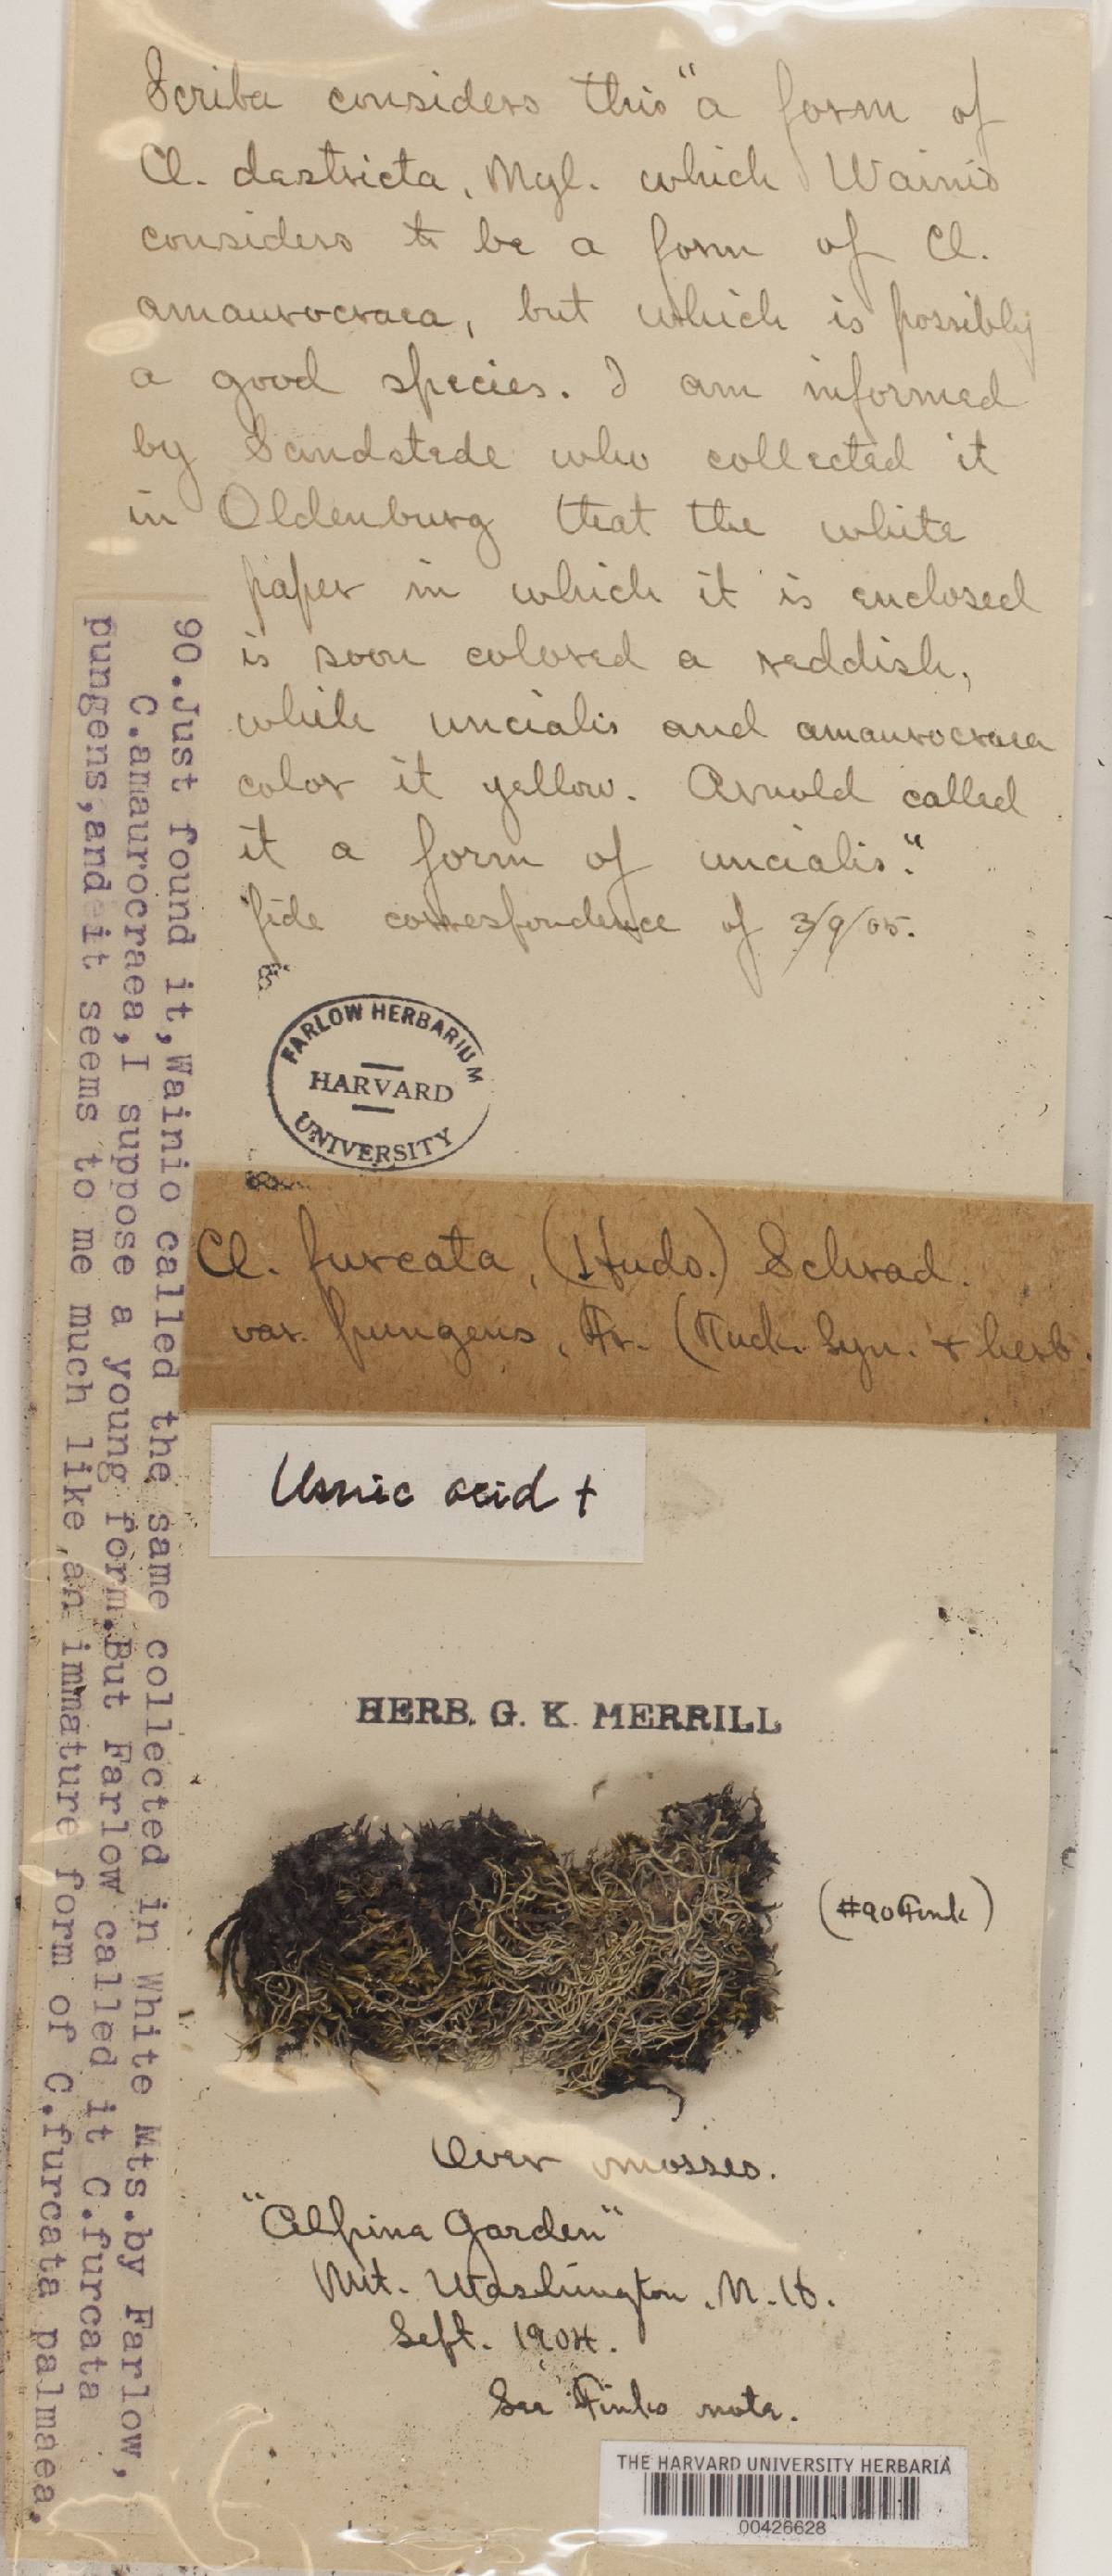 Scriba considers this "a form of
Cl. destricta, Nyl. which Wainio
considers to be a form of Cl.
amaurocraea, but which is possibly
a good species. I am informed
by Sandstede who collected it
in Oldenburg that the white
paper in which it is enclosed
is soon colored a reddish,
while uncialis and amaurocraea
color it yellow. Arnold called
it a form of uncialis."
fide correspondence of 3/9/05.
90.Just found it,Wainio called the same collected in White Mts.by Farlow,
C.amaurocraea,I suppose a young form.But Farlow called it C.furcata
pungens,and it seems to me much like,an immature form of C.furcata palmaea.
FARLOW HERBARIUM
HARVARD
UNIVERSITY
Cl. furcata, (Huds.) Schrad.
var. pungens, Fr. (Tuck. Syn. + herb.
Usnic acid +
HERB. G. K. MERRILL
(#90 Fink)
Over mosses.
"Alpine Garden"
Mt. Washington, N.H.
Sept. 1904.
See Finks note.
THE HARVARD UNIVERSITY HERBARIA
00426628